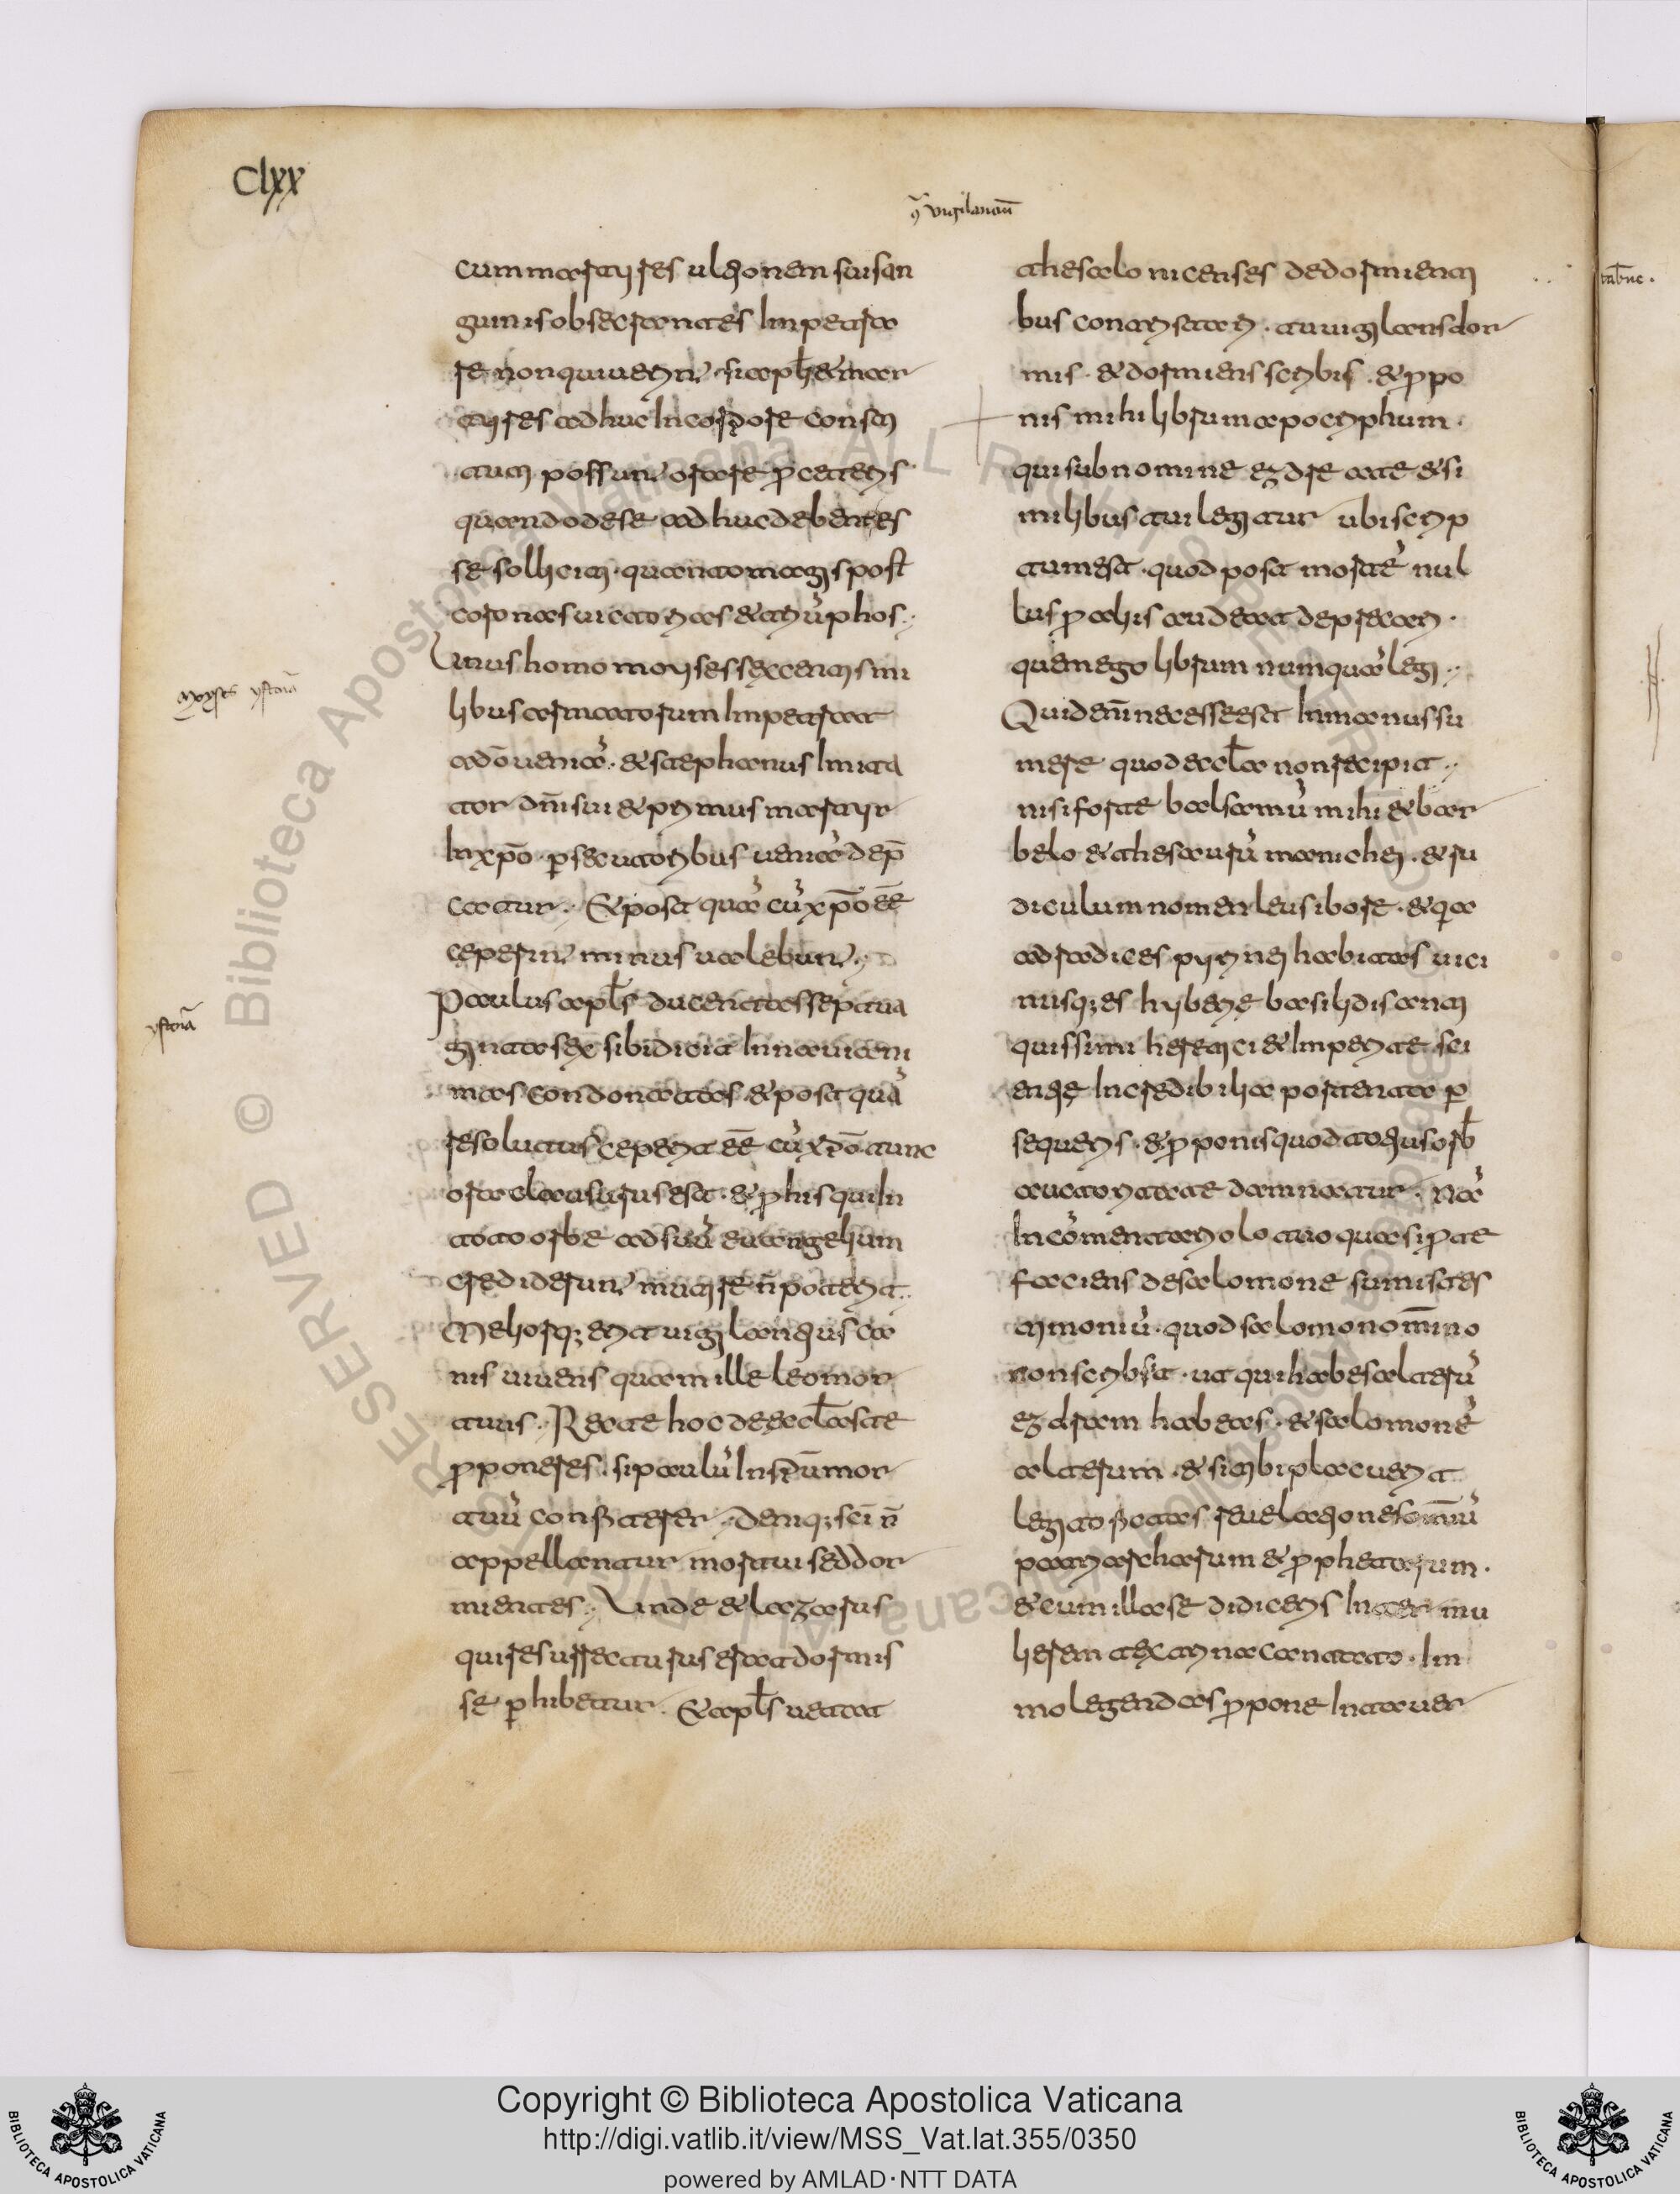 Clxx
9͂ vigilantiū
cum martyres ultionem sui san
guinis obsecrantes Impetra
re non quiuerint. Si apłi & mar
tyres adhuc In corpore consti
tuti possunt orare p̱ ceteris
quando de se adhuc debent es
se solliciti. quanto magis post
coronas uictorias & triūphos.
Unus homo moyses sexcentis mi
moyses ystoria
libus armatorum Impetrat
a dō ueniā. & stephanus Imita
tor dn̄i sui & primus martyr
In xp̄o. ꝑsecutoribus ueniā dep̄
catur. & post quā cū xp̄o ee̅
ceperint minus ualebunt.
Paulus apłs ducentas septua
ystoria
ginta sex sibi dicit In naui ani
mas condonatas. & post quā
resolutus ceperit ee̅ cū xp̄o tunc
ora clausurus est. & p̱ his qui In
toto orbe ad suū euangelium
crediderunt mutire n̄ poterit.
Meliorq; erit uigilantius ca
nis uiuens quam ille leo mor
tuus. Recte hoc de eccłaste
p̱poneres. si paulū In sp̄u mor
tuū confiterer. Deniq; sc̄i n̄
appellantur mortui sed dor
mientes. Unde & lazarus
qui resurrecturus erat dormis
se ꝑhibetur. & apłs uetat
thesalonicenses de dormienti
bus contristari. tu uigilans dor
mis. & dormiens scribis. & p̱po
nis mihi librum apocriphum.
qui sub nomine ezdre a te & si
milibus tui legitur ubi scrip
tum est. quod post mortē nul
lus p̱ aliis audeat deprecari.
quem ego librum numquā legi.
Quid enī necesse est In manus su
mere quod eccła non recipit.
nisi forte balsamū mihi & bar
belo & thesaurū manichei. & ri
diculum nomen leusibore. & q̱a
ad radices pyrinei habitas uici
nusq; es hyberiae basilidis anti
quissimi heretici & Imperitae sci
entiae Incredibilia portenta ꝑ
sequeris. & p̱ponis quod totius orb̄
auctoritate damnatur. Nā
In cōmentariolo tuo quasi p̱ te
faciens de salomone sumis tes
timoniū. quod salomon om̄ino
non scripsit. ut qui habes alterū
ezdram habeas. & salomonē
alterum. & si tibi placuerit
legito fictas reuelationes om̄iū
patriarcharum & p̱phetarum.
& cum illas e didiceris Inter mu
lierem textrinas cantato. Im
mo legendas p̱pone In tauer